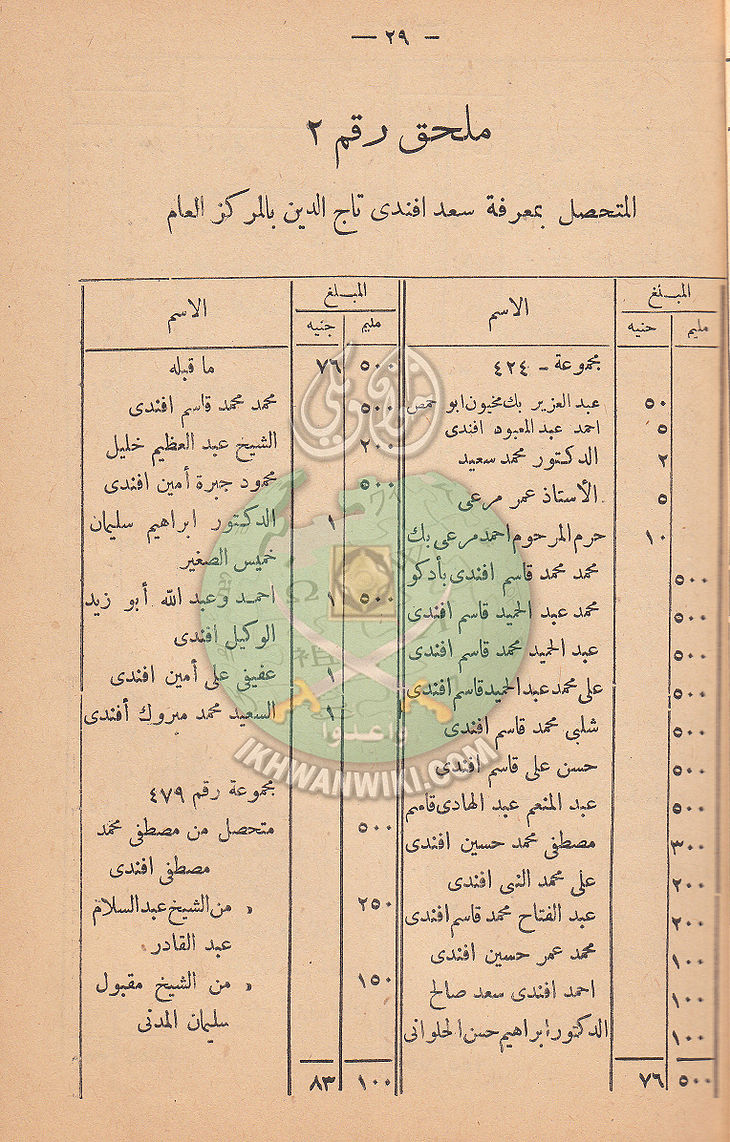 — ٢٩ —
ملحق رقم ٢
المتحصل بمعرفة سعد افندى تاج الدين بالمركز العام
المبلغ الاسم المبلغ الاسم
مليم جنيه مليم جنيه
مجموعة - ٤٢٤
٥٠ عبد العزيز بك مخيون ابو حمص
٥ احمد عبد المعبود افندى
٢ الدكتور محمد سعيد
٥ الأستاذ عمر مرعى
١٠ حرم المرحوم احمد مرعى بك
٥٠٠ محمد محمد قاسم افندى بأدكو
٥٠٠ محمد عبد الحميد قاسم افندى
٥٠٠ عبد الحميد محمد قاسم افندى
٥٠٠ على محمد عبد الحميد قاسم افندى
٥٠٠ شلبى محمد قاسم افندى
٥٠٠ حسن على قاسم افندى
٥٠٠ عبد المنعم عبد الهادى قاسم
٣٠٠ مصطفى محمد حسين افندى
٢٠٠ على محمد النى افندى
٢٠٠ عبد الفتاح محمد قاسم افندى
١٠٠ محمد عمر حسين افندى
١٠٠ احمد افندى سعد صالح
١٠٠ الدكتور ابراهيم حسن الحلوانى
٥٠٠ ٧٦
٥٠٠ ٧٦ ما قبله
٥٠٠ محمد محمد قاسم افندى
٢٠٠ الشيخ عبد العظيم خليل
٥٠٠ محمود جبرة أمين افندى
١ الدكتور ابراهيم سليمان
خميس الصغير
٥٠٠ ١ احمد وعبد الله أبو زيد
الوكيل افندى
١ عفيفى على أمين افندى
١ السعيد محمد مبروك أفندى
مجموعة رقم ٤٧٩
٥٠٠ متحصل من مصطفى محمد
مصطفى افندى
٢٥٠ « من الشيخ عبد السلام
عبد القادر
١٥٠ « من الشيخ مقبول
سليمان المدنى
١٠٠ ٨٣
إخوان ويكي
واعدوا
IKHWANWIKI.COM